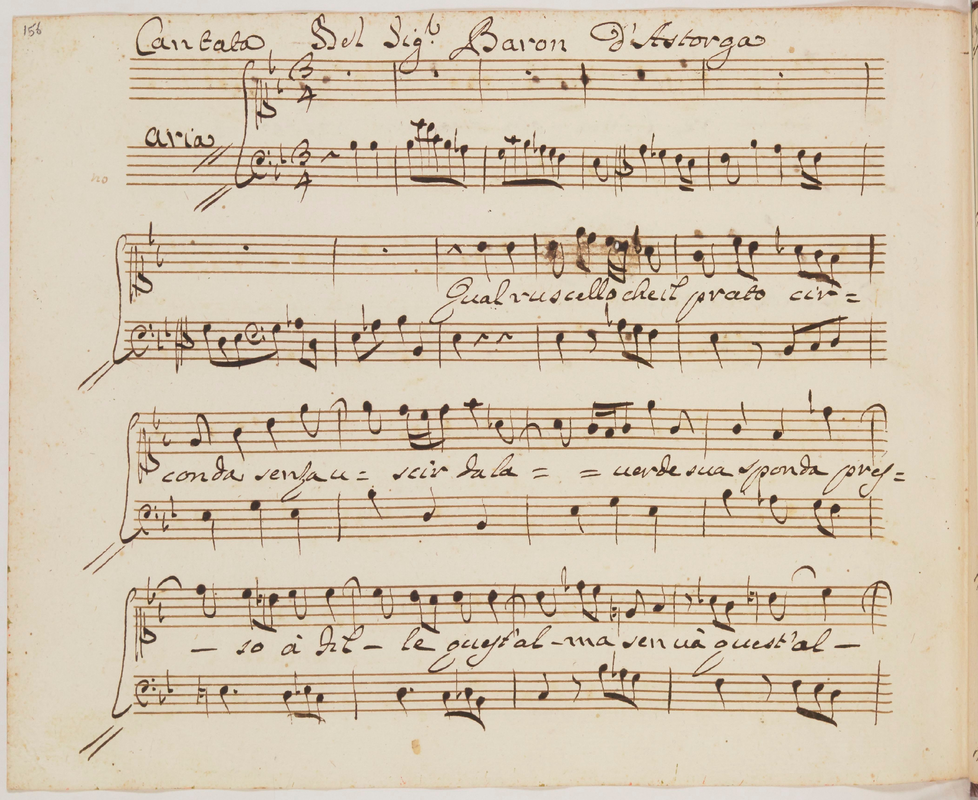 156
Cantata Del Sig.r Baron D'Astorga
aria
3 4
3 4
Qual ruscello che il prato cir=
conda senza u= scir da la = = uerde sua sponda pres=
– so à Fil – le quest'al – ma sen uà quest'al –